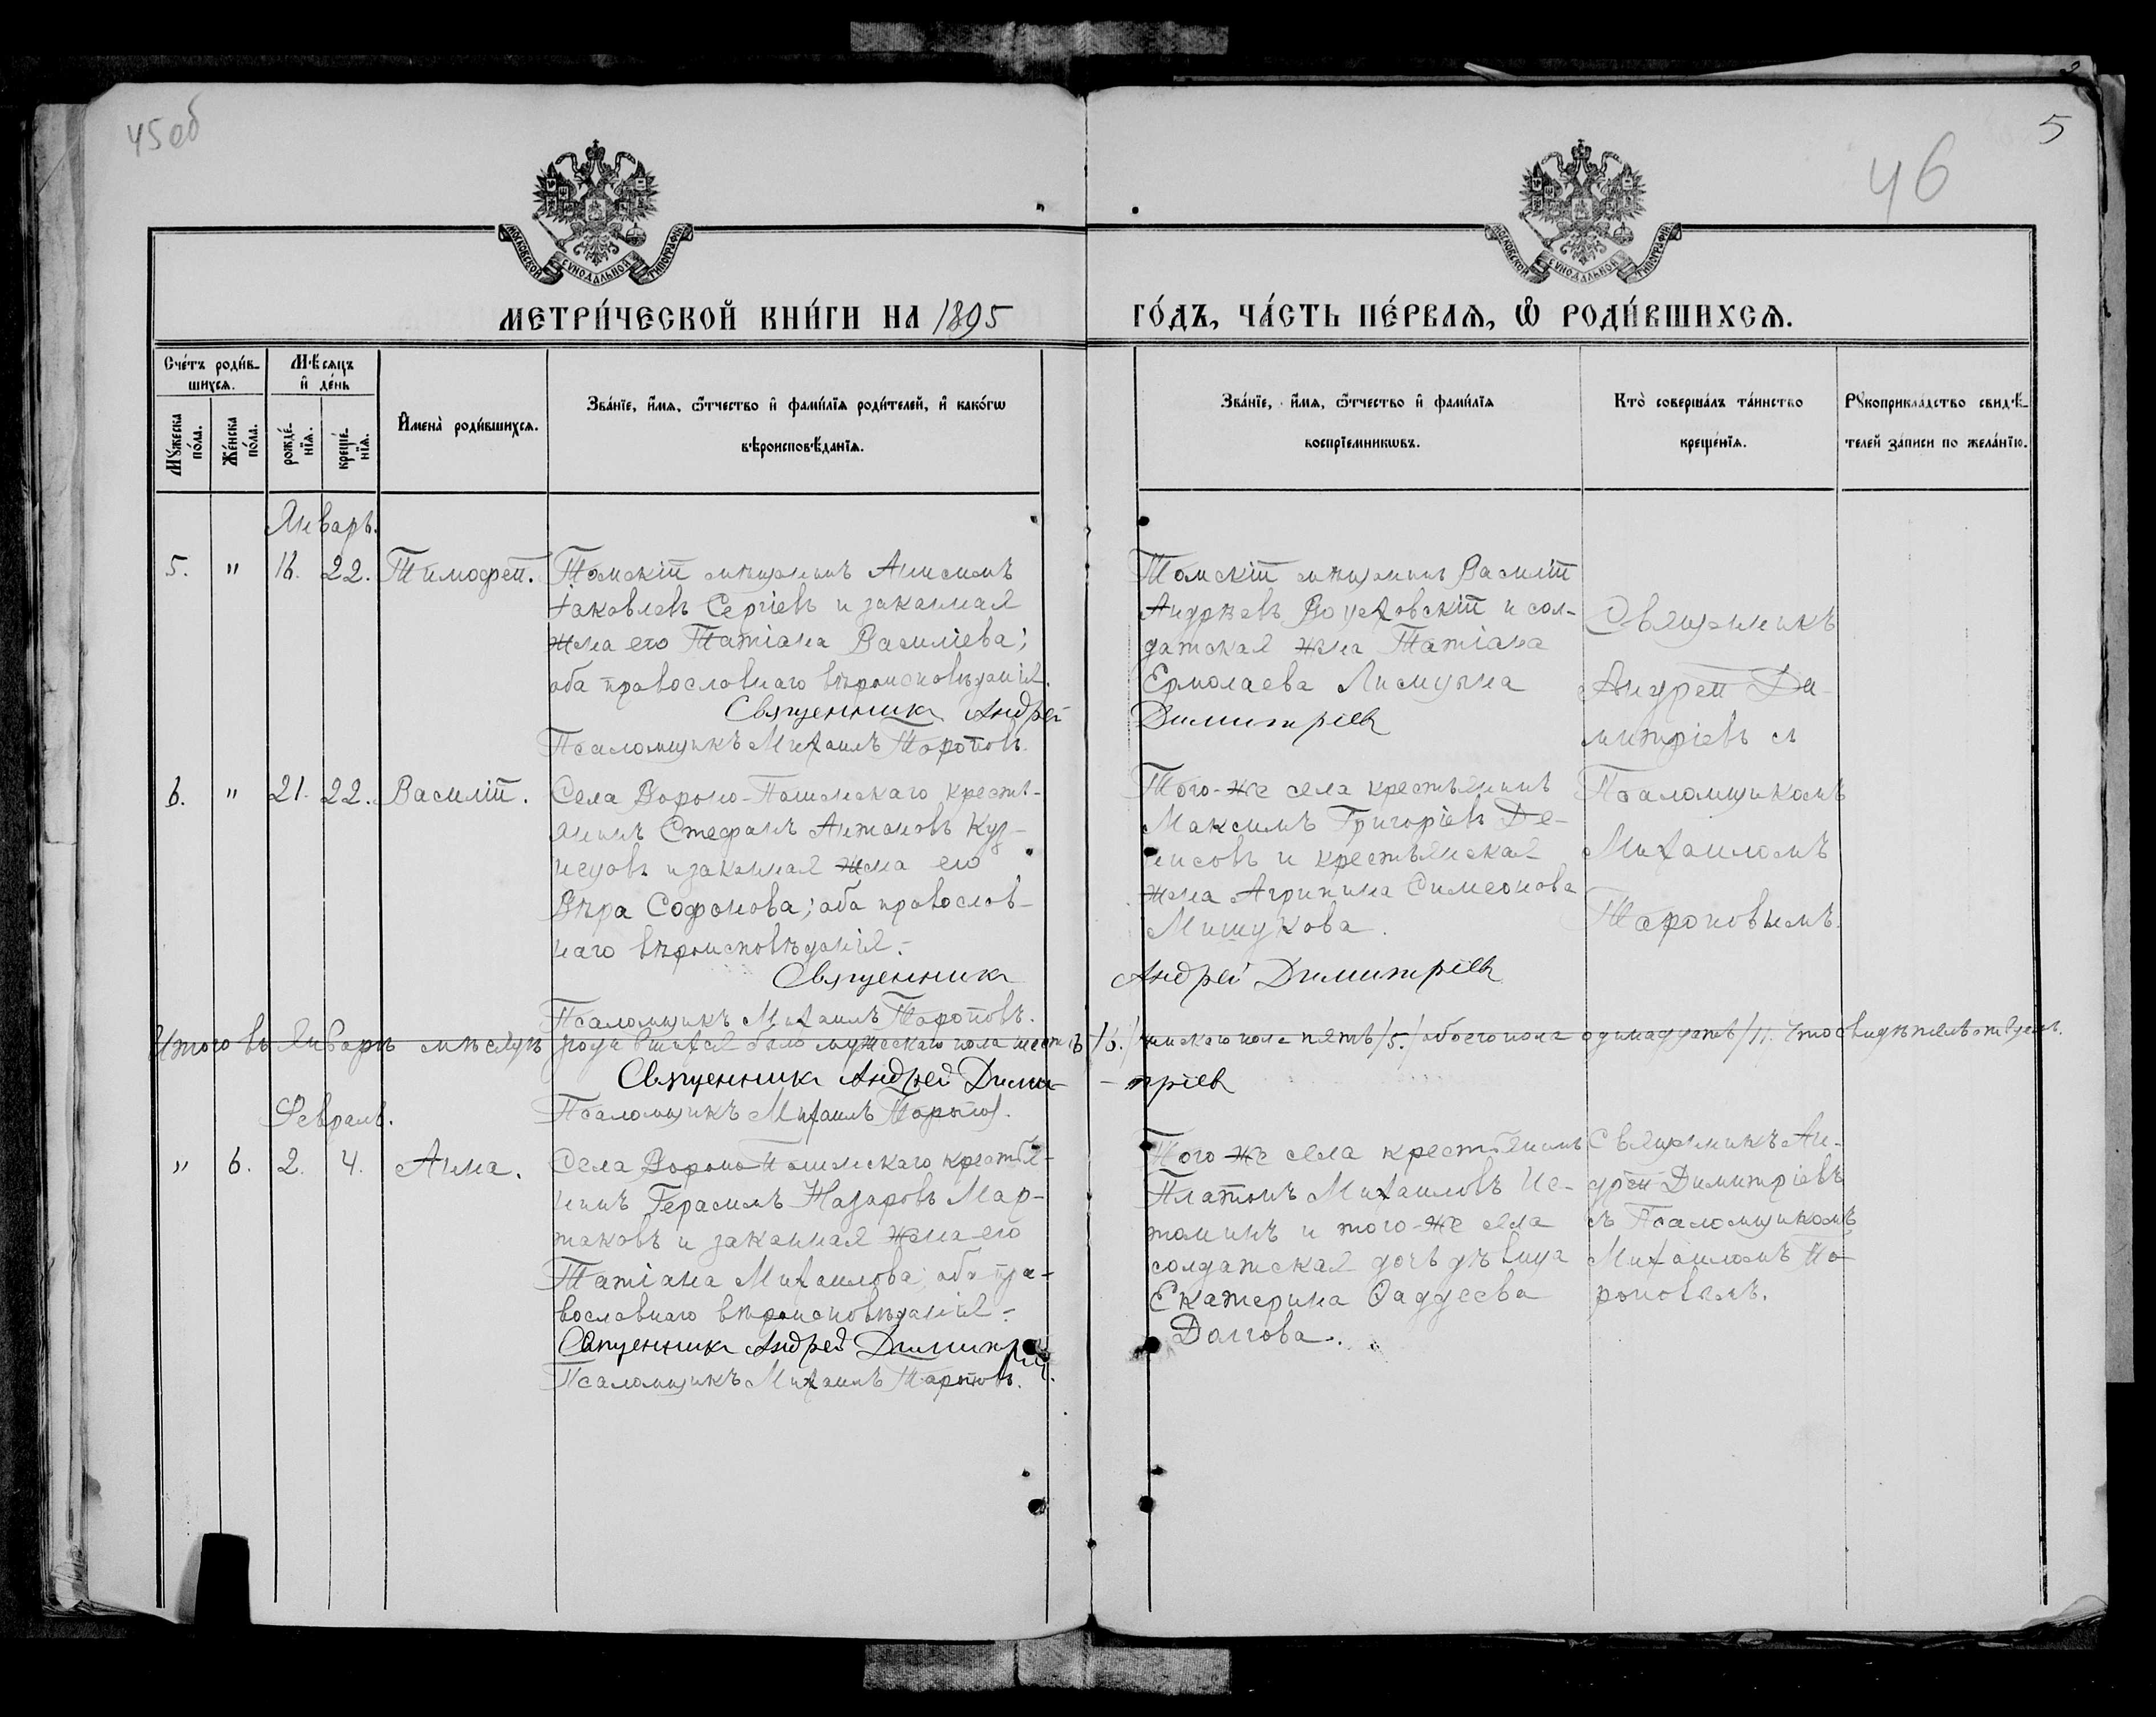 45 об
46
5
МОСКОВСКОЙ СѴНОДАЛЬНОЙ ТИПОГРАФІИ
МОСКОВСКОЙ СѴНОДАЛЬНОЙ ТИПОГРАФІИ
МЕТРИ́ЧЕСКОЙ КНИ́ГИ НА 1895
ГО́ДЪ, ЧА́СТЬ ПЕ́РВАѦ, Ѿ РОДИ́ВШИХСѦ.
Сче́тъ роди́в-
шихсѧ.
Мꙋ́жеска
по́ла.
Же́нска
по́ла.
Мѣ́сѧцъ
и҆ де́нь
рожде́-
нїѧ.
креще́-
нїѧ.
И҆мена̀ роди́вшихсѧ.
Зва́нїе, и҆́мѧ, ѻ҆́тчество и҆ фами́лїѧ роди́телей, и҆ како́гѡ
вѣроисповѣ́данїѧ.
Зва́нїе, и҆́мѧ, ѻ҆́тчество и҆ фами́лїѧ
воспрїе́мникѡвъ.
Кто̀ соверша́лъ та́инство
креще́нїѧ.
Рꙋкоприкла́дство свидѣ́-
телей за́писи по жела́нїю.
Январь.
5. " 16. 22. Тимофей.
Томскій мѣщанинъ Анисимъ
Іаковлевъ Сергіевъ и законная
жена его Татіана Василіева;
оба православнаго вѣроисповѣданія.
Священникъ Андрей
Псаломщикъ Михаилъ Торопов.
Томскій мѣщанинъ Василій
Андрѣевъ и сол-
датская жена Татіана
Ермолаева Лисицына
Димитріев
Священникъ
Андрей Ди-
митріевъ съ
6. " 21. 22. Василій.
Села Вороно-Пашенскаго кресть-
янинъ Стефанъ Антоновъ Куз-
нецовъ и законная жена его
Вѣра Софонова; оба православ-
наго вѣроисповѣданія.-
Священникъ
Псаломщикъ Михаилъ Тороповъ.
Того-же села крестьянинъ
Максимъ Григоріевъ Де-
нисовъ и крестьянская
жена Агрипина Симеонова
Мишукова.
Андрей Димитріев
Псаломщикомъ
Михаиломъ
Тороповымъ.
Итого въ Январѣ мѣсяцѣ родившихся было мужескаго пола шесть /6./ женскаго пола пять /5./ обоего пола одинадцать /11. Что свидѣтельствуемъ.
Священникъ Андрей Дими-
-тріев
Псаломщикъ Михаилъ Торопов.
Февраль.
" 6. 2. 4. Анна.
Села Вороно-Пашенскаго крестья-
нинъ Герасимъ Назаровъ Мар-
таковъ и законная жена его
Татіана Михаилова; оба пра-
вославнаго вѣроисповѣданія.-
Священникъ Андрей Димитріев.
Псаломщикъ Михаилъ Тороповъ.
Того же села крестьянинъ
Платонъ Михаиловъ Ис-
томинъ и того-же села
солдатская дочь дѣвица
Екатерина Фаддеева
Долгова.
Священникъ Ан-
дрей Димитріевъ
съ Псаломщикомъ
Михаиломъ То-
роповымъ.